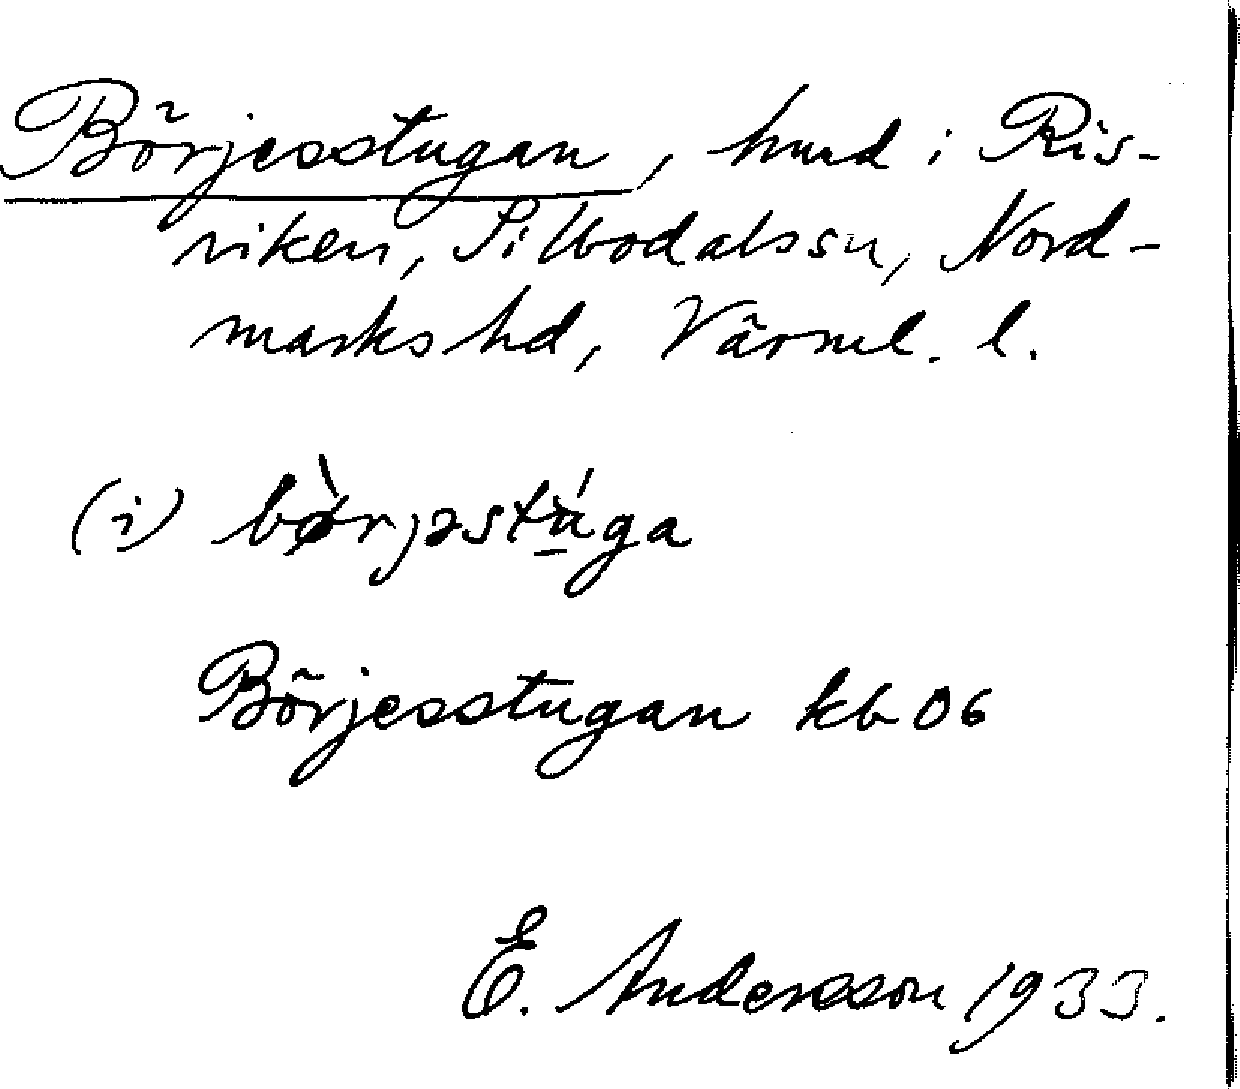 Börjesstugan, hmd i Ris-
viken, Silbodals sn, Nord-
marks hd, Värml. l.
(i) bø̀rjəstṳ́ga
Börjesstugan kb 06
E. Andersson 1933.